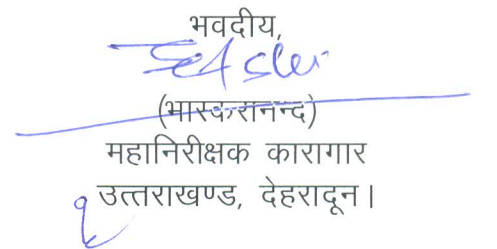 भवदीय,
(भास्करानन्द)
महानिरीक्षक कारागार
उत्तराखण्ड, देहरादून।